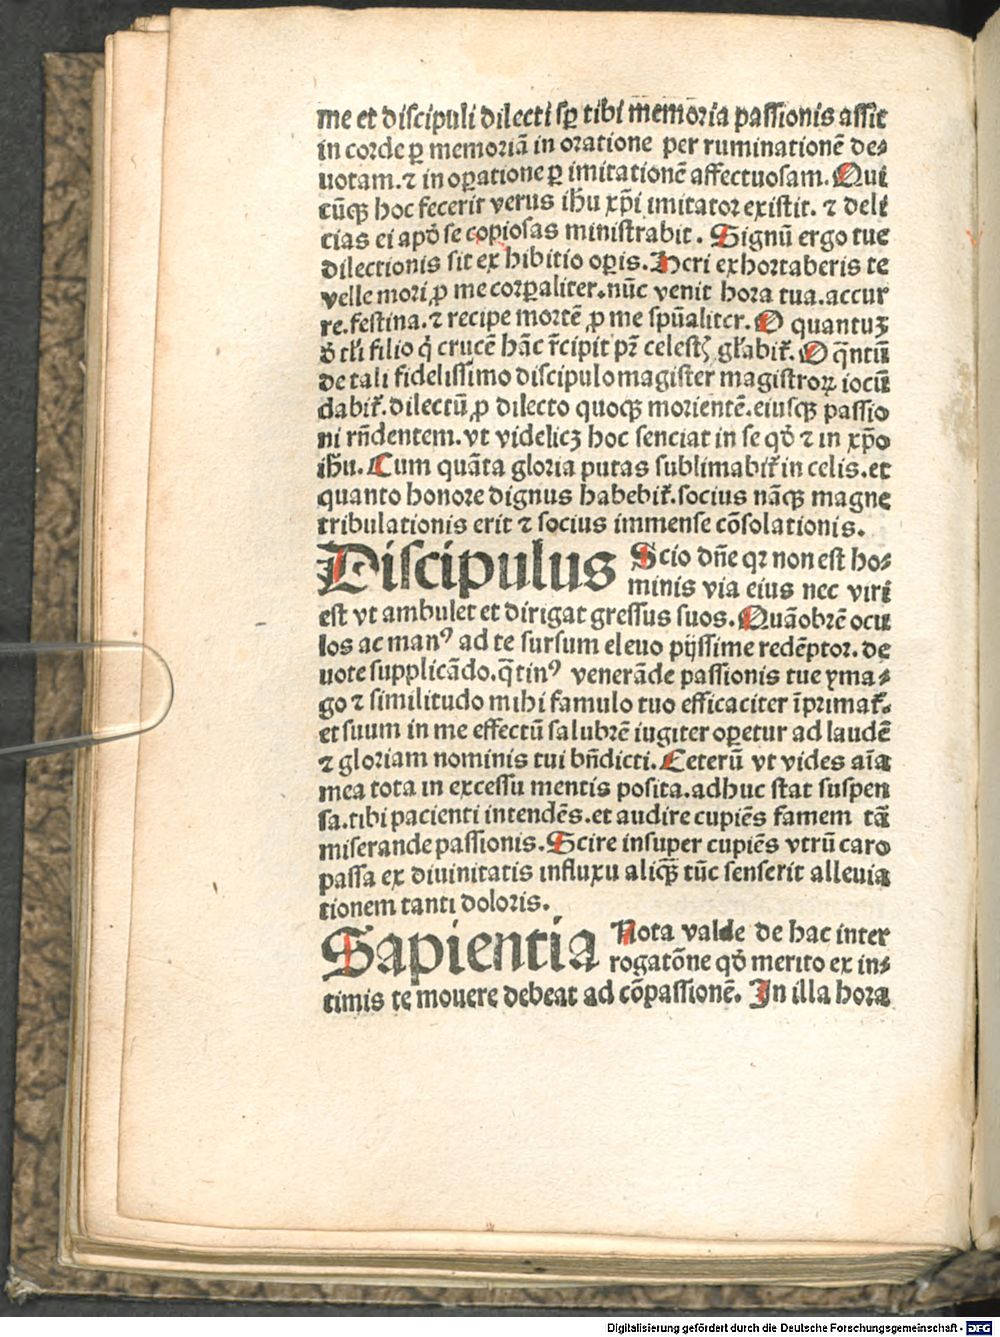 me et discipuli dilecti sꝑ tibi memoria passionis assit
in corde ꝑ memoriā in oratione per ruminationē de⸗
uotam. ⁊ in oꝑatione ꝑ imitationē affectuosam. Qui
cūqꝫ hoc fecerit verus ihū xp̄i imitator existit. ⁊ deli
cias ei apd̄ se copiosas ministrabit. Signū ergo tue
dilectionis sit exhibitio oꝑis. Incri exhortaberis te
velle mori ꝓ me corꝑaliter. nūc venit hora tua. accur
re. festina. ⁊ recipe mortē ꝓ me spūaliter. O quantuꝫ
celestꝫ
de tali fidelissimo discipulo magister magistroꝝ iocū
dabit̄. dilectū ꝓ dilecto quoqꝫ morientē. eiusqꝫ passio
ni rn̄dentem. vt videlicꝫ hoc senciat in se qd̄ ⁊ in xp̄o
ihū. Cum quāta gloria putas sublimabit̄ in celis. et
quanto honore dignus habebit̄. socius nāqꝫ magne
tribulationis erit ⁊ socius immense cōsolationis.
Discipulus Scio dn̄e qꝛ non est ho⸗
minis via eius nec viri
est vt ambulet et dirigat gressus suos. Quāobrē ocu
los ac manꝰ ad te sursum eleuo pijssime redēptor. de
uote supplicādo. q̄tinꝰ venerāde passionis tue yma⸗
go ⁊ similitudo mihi famulo tuo efficaciter īprimat̄.
et suum in me effectū salubrē iugiter oꝑetur ad laudē
⁊ gloriam nominis tui bn̄dicti. Ceterū vt vides aīa
mea tota in excessu mentis posita. adhuc stat suspen
sa. tibi pacienti intendēs. et audire cupiēs famem tā
miserande passionis. Scire insuper cupiēs vtrū caro
passa ex diuinitatis influxu aliqꝫ tūc senserit alleuia
tionem tanti doloris.
Sapientia Nota valde de hac inter
rogatōne qd̄ merito ex in⸗
timis te mouere debeat ad cōpassionē. In illa hora
Digitalisierung gefördert durch die Deutsche Forschungsgemeinschaft - DFG